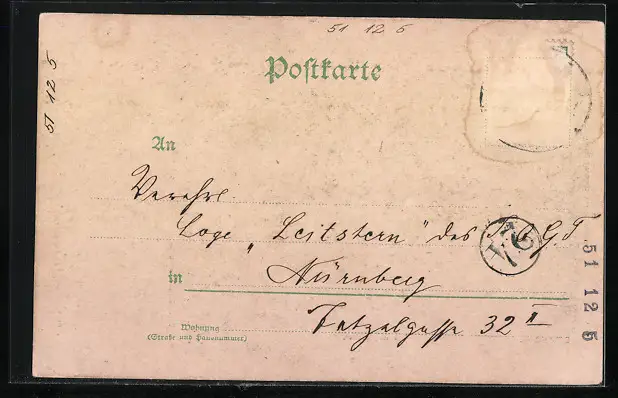 51 12 5
51 12 5
Postkarte
An
Verehrl.
Loge „Leitstern" des I.O.G.T.
in Nürnberg
Wohnung
(Straße und Hausnummer)
Tetzelgasse 32 II
51 12 5